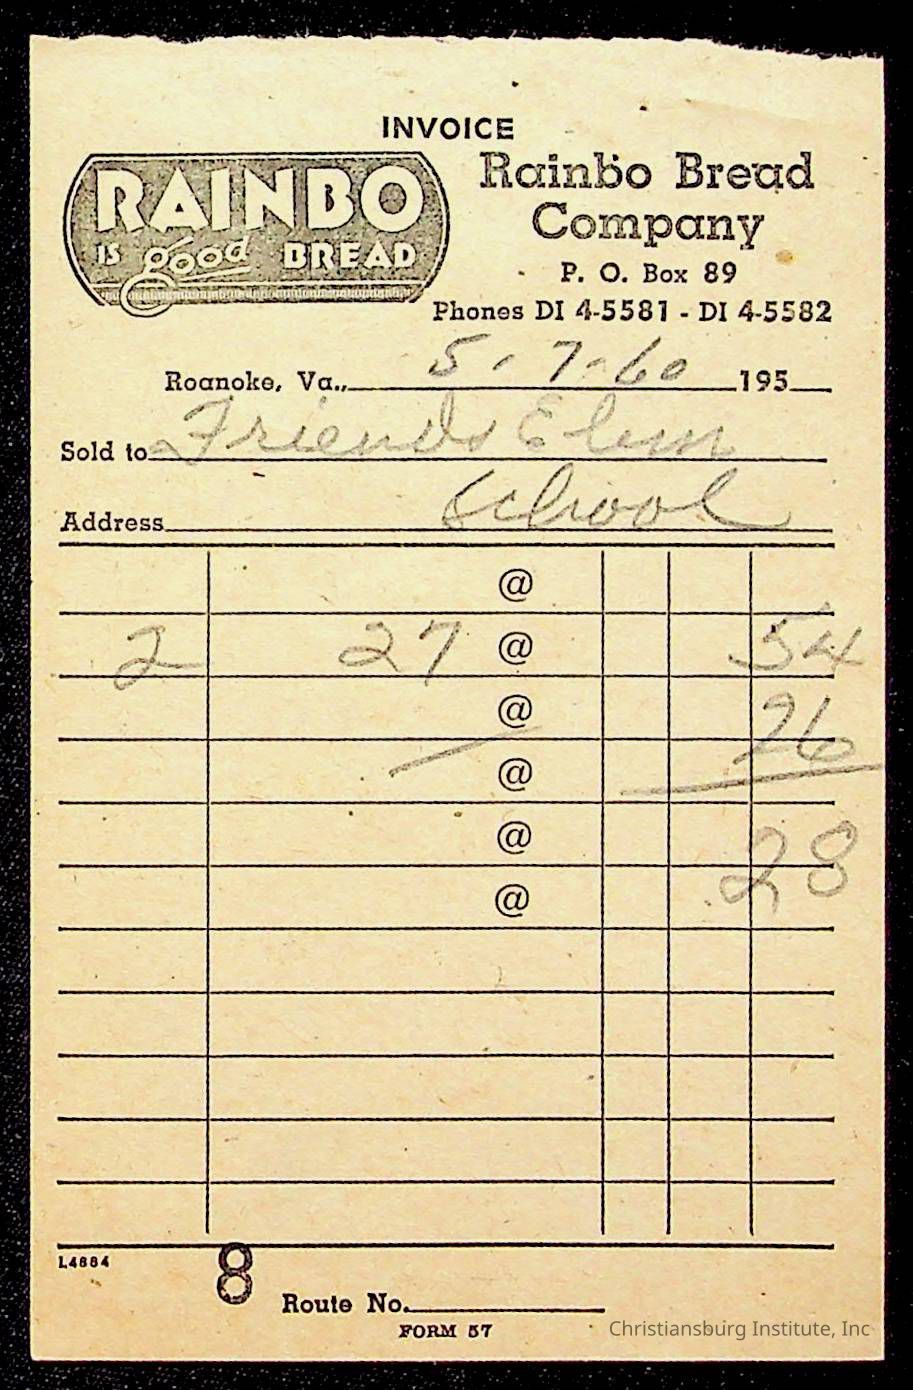 INVOICE
RAINBO
IS good BREAD
Rainbo Bread
Company
P. O. Box 89
Phones DI 4-5581 - DI 4-5582
Roanoke, Va., 5-7-60 195
Sold to Friends Elem
Address School
@
2 27 @ 54
@ 26
@
@ 28
@
L4884
8
Route No.
FORM 57
Christiansburg Institute, Inc